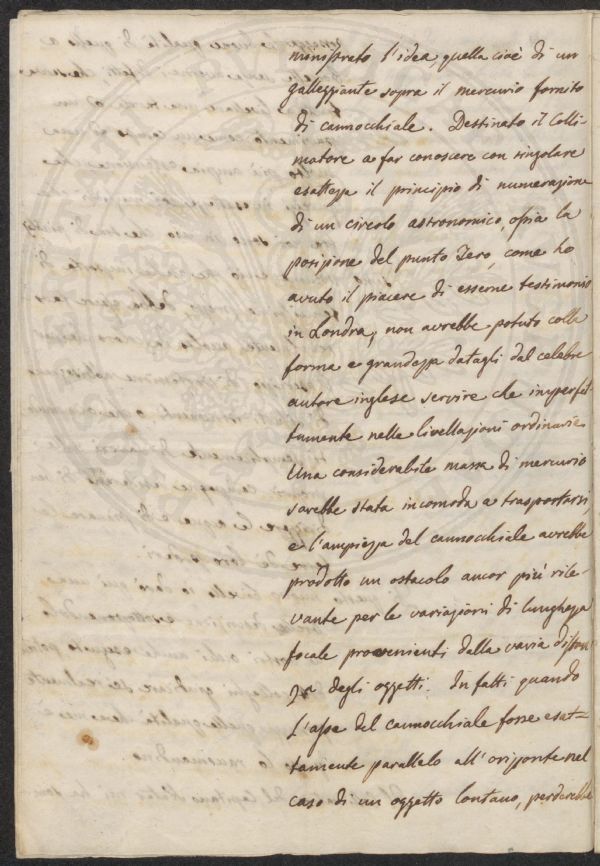 ministrato l'idea, quella cioè di un
galleggiante sopra il mercurio fornito
di cannocchiale. Destinato il Colli-
matore a far conoscere con singolare
esattezza il principio di numerazione
di un circolo astronomico, ossia la
posizione del punto Zero, come ho
avuto il piacere di esserne testimonio
in Londra, non avrebbe potuto colla
forma e grandezza datagli dal celebre
autore inglese servire che imperfet-
tamente nelle livellazioni ordinarie.
Una considerabile massa di mercurio
sarebbe stata incomoda a trasportarsi
e l'ampiezza del cannocchiale avrebbe
prodotto un ostacolo ancor più rile-
vante per le variazioni di lunghezza
focale provenienti dalla varia distan
za degli oggetti. In fatti quando
l'asse del cannocchiale fosse esat-
tamente parallelo all'orizzonte nel
caso di un oggetto lontano, perderebbe